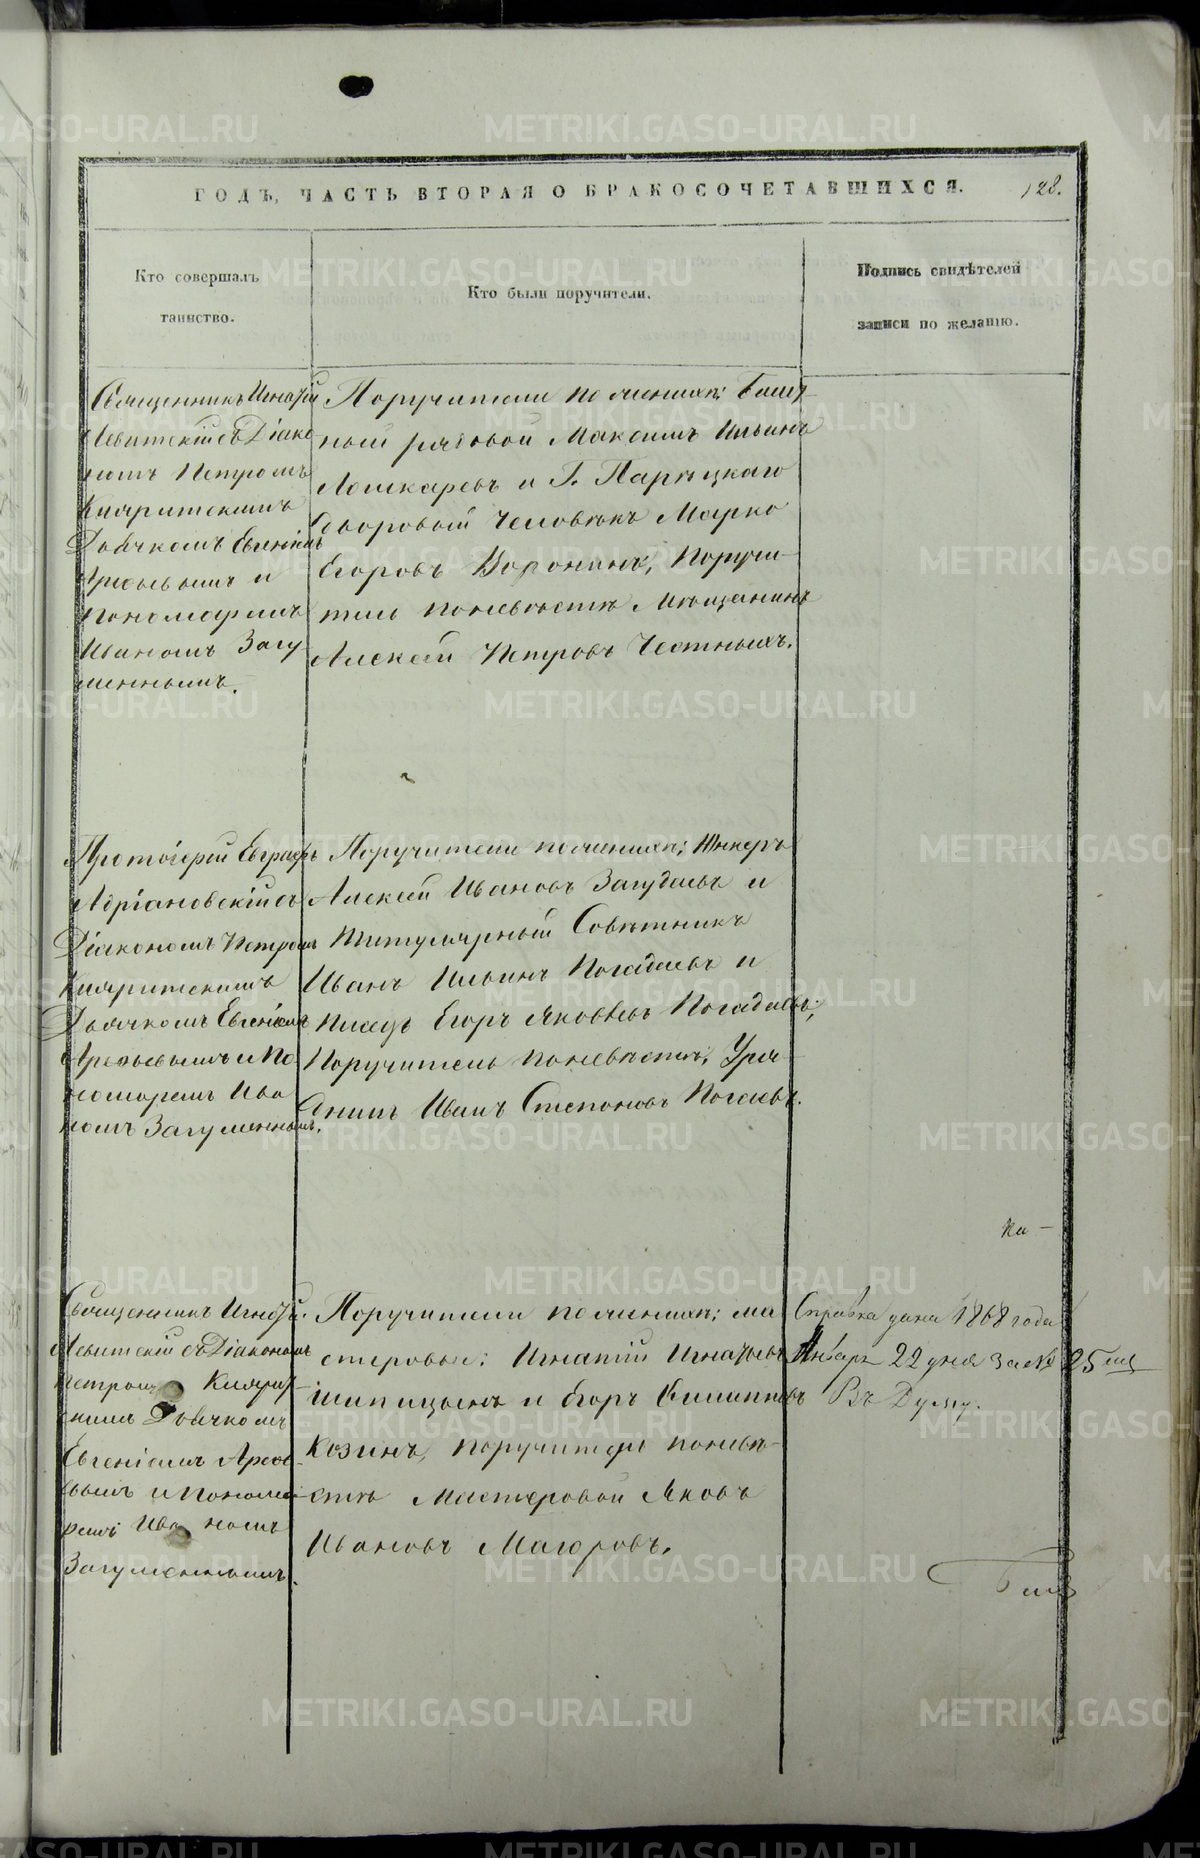 ГОДЪ, ЧАСТЬ ВТОРАЯ О БРАКОСОЧЕТАВШИХСЯ. 128.
Кто совершалъ
таинство.
Кто были поручители.
Подпись свидѣтелей
записи по желанію.
Священникъ Игнатій
Левитскій съ Діако
номъ Петромъ
Дьячкомъ Евгеніемъ
и
пономаремъ
Иваномъ Загу-
меннымъ.
Поручители по женихѣ:
рядовой Максимъ Ильинъ
Лошкаревъ и Г.
дворовый человѣкъ Марко
Егоровъ Воронинъ, Поручи-
тель по невѣстѣ Мѣщанинъ
Алексѣй Петровъ Честныхъ.
Протоіерей Евграфъ
Адріановскій съ
Діакономъ Петромъ
Дьячкомъ Евгеніемъ
и По
номаремъ Ива
номъ Загуменнымъ.
Поручители по женихѣ; Юнкеръ
Алексѣй Ивановъ и
Титулярный Совѣтникъ
Иванъ Ильинъ Погадаевъ и
писецъ Егоръ Яковлевъ Погадаевъ;
Поручитель по невѣстѣ, Уря-
дникъ Иванъ Степановъ
Священникъ Игнатій
Левитскій съ Діакономъ
Петромъ
Дьячкомъ
Евгеніемъ
и понома-
ремъ Иваномъ
Загуменнымъ.
Поручители по женихѣ: ма
стеровые: Игнатій Игнатьевъ
Шипицынъ и Егоръ Филипповъ
Козинъ, поручитель по невѣ-
стѣ Мастеровой Яковъ
Ивановъ Магоровъ.
Справка дана 1868 года
Января 22 дня за № 25
Въ Думу.
METRIKI.GASO-URAL.RU